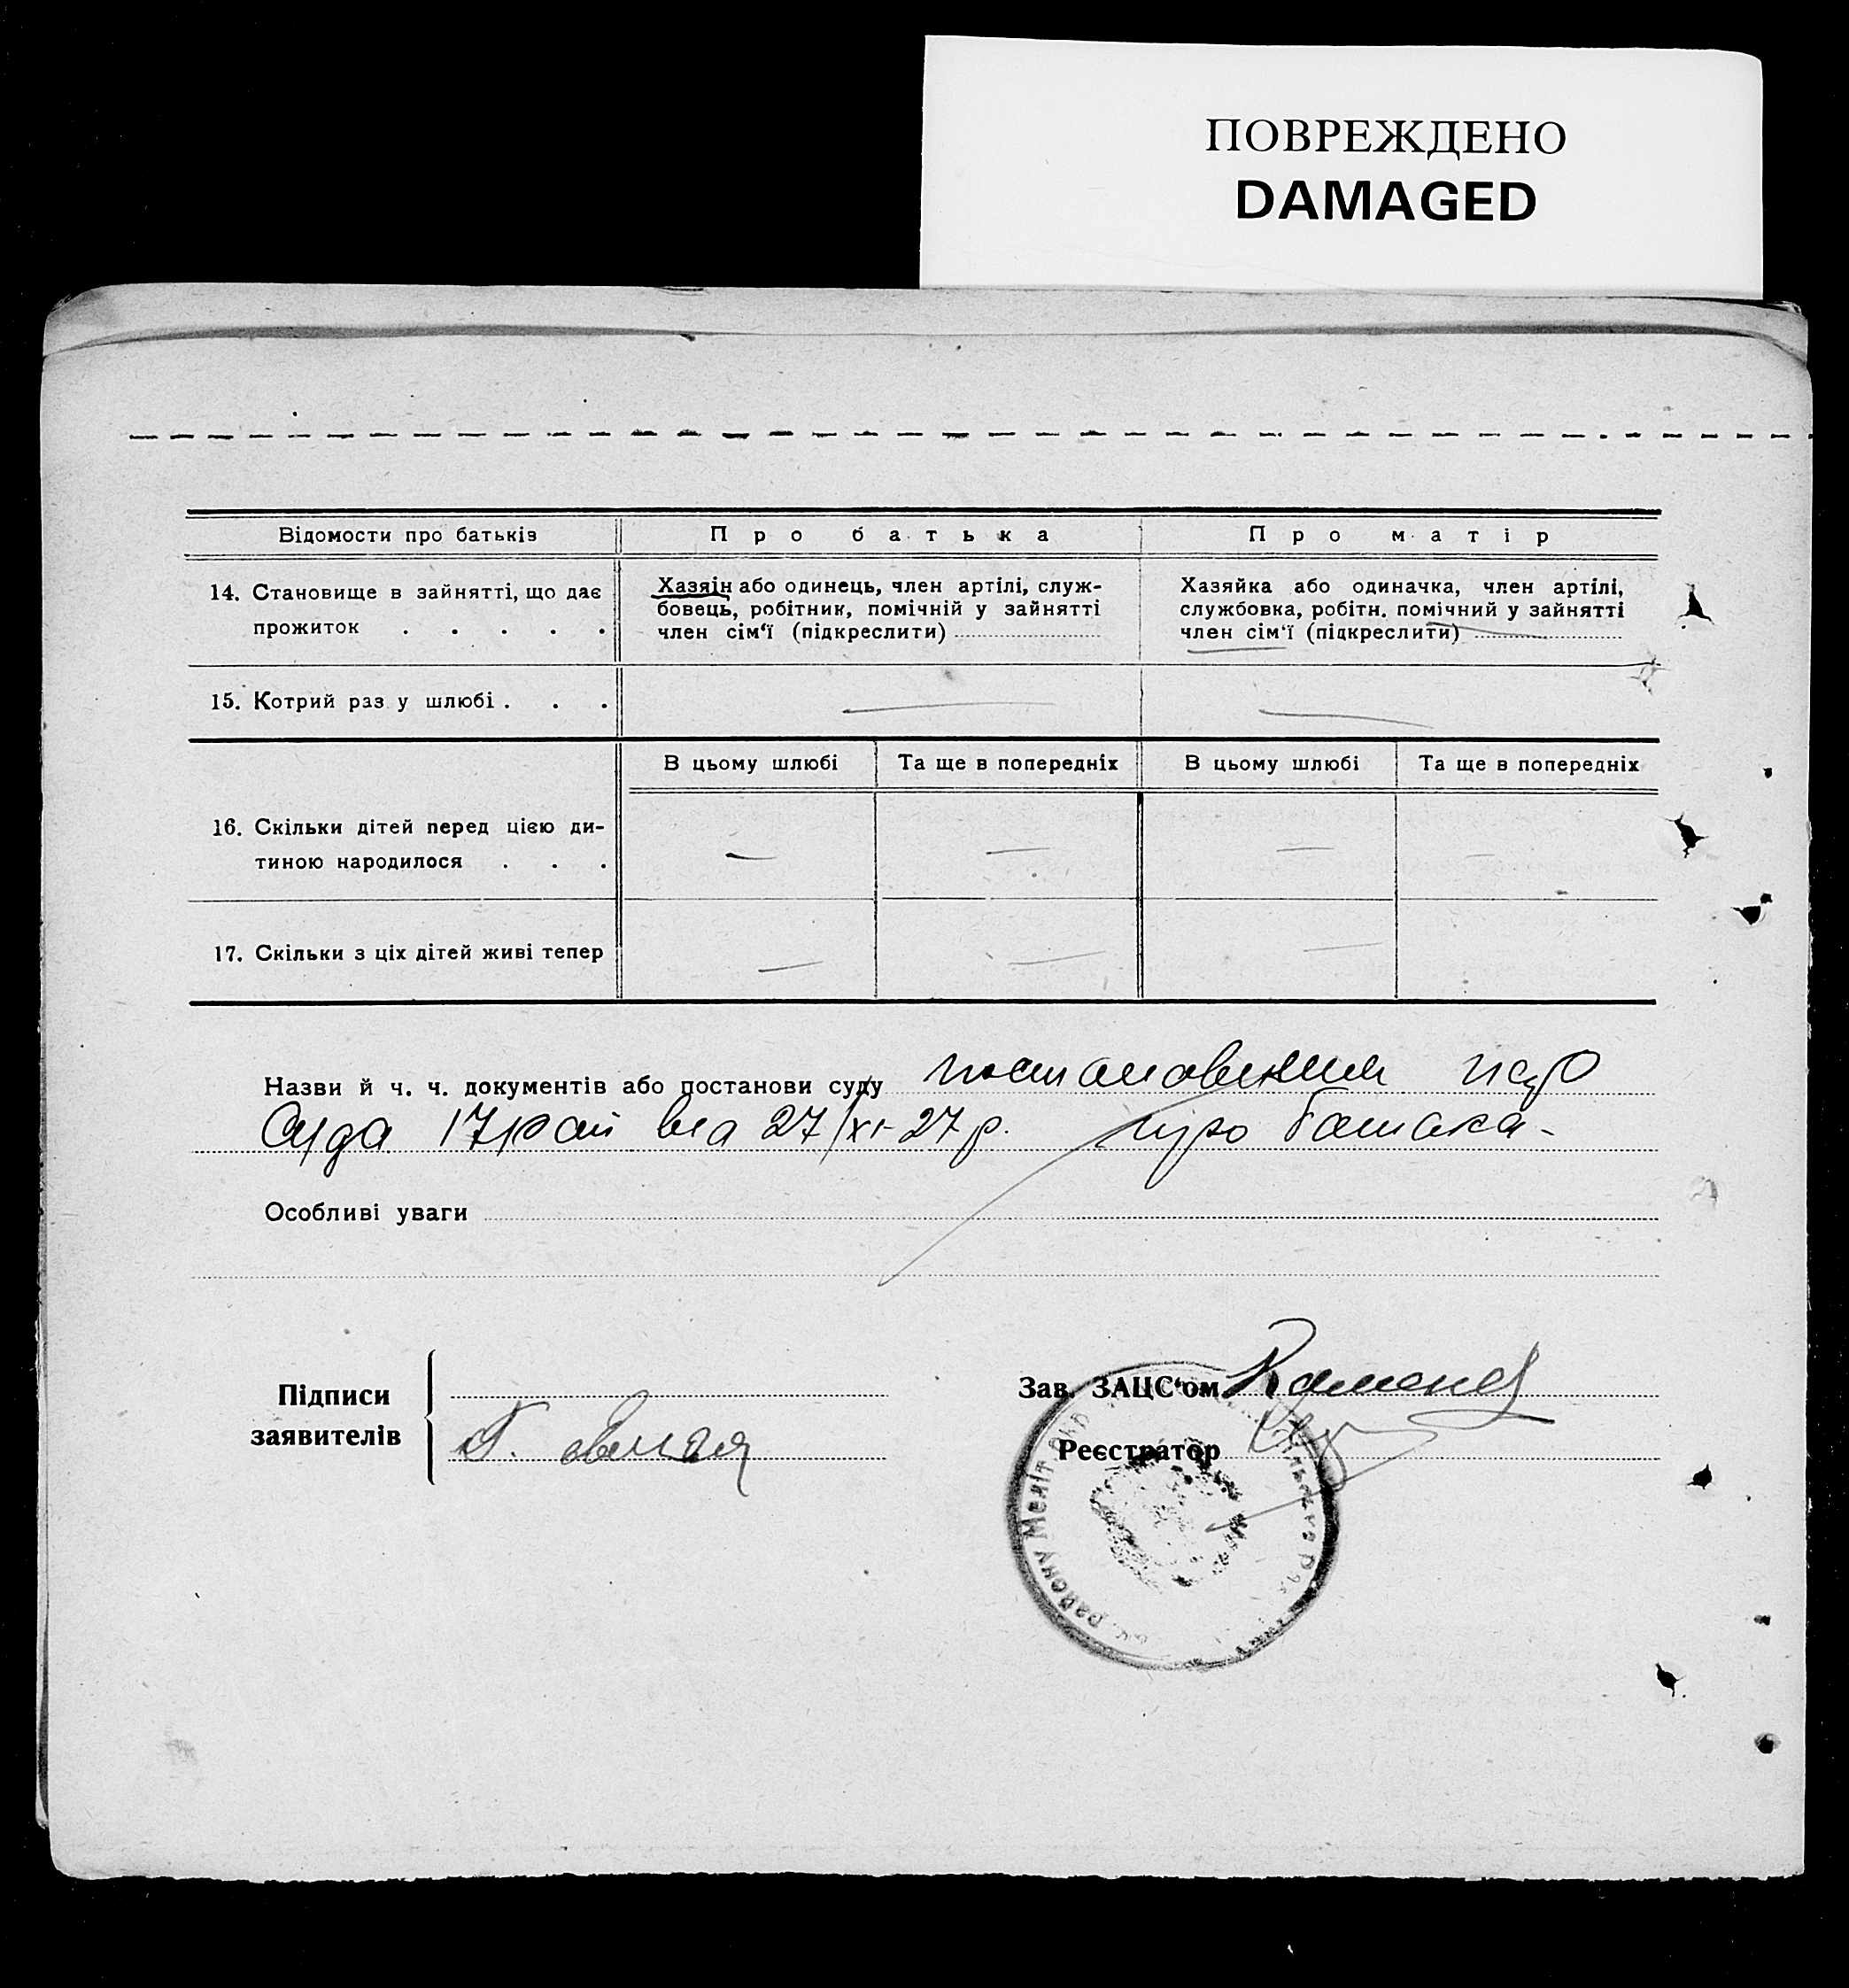 ПОВРЕЖДЕНО
DAMAGED
Відомости про батьків
Про батька
Про матір
14. Становище в зайнятті, що дає
прожиток . . . . .
Хазяїн або одинець, член артілі, служ-
бовець, робітник, помічній у зайнятті
член сім‘ї (підкреслити)
Хазяйка або одиначка, член артілі,
службовка, робітн. помічний у зайнятті
член сім‘ї (підкреслити)
15. Котрий раз у шлюбі . . .
В цьому шлюбі
Та ще в попередніх
В цьому шлюбі
Та ще в попередніх
16. Скільки дітей перед цією ди-
тиною народилося . . .
17. Скільки з ціх дітей живі тепер
Назви й ч. ч. документів або постанови суду
Суда 17 рай від 27/XI-27 р. про батька-
Особливі уваги
Підписи
заявителів
Зав. ЗАЦС‘ом
Реєстратор
району Меліт